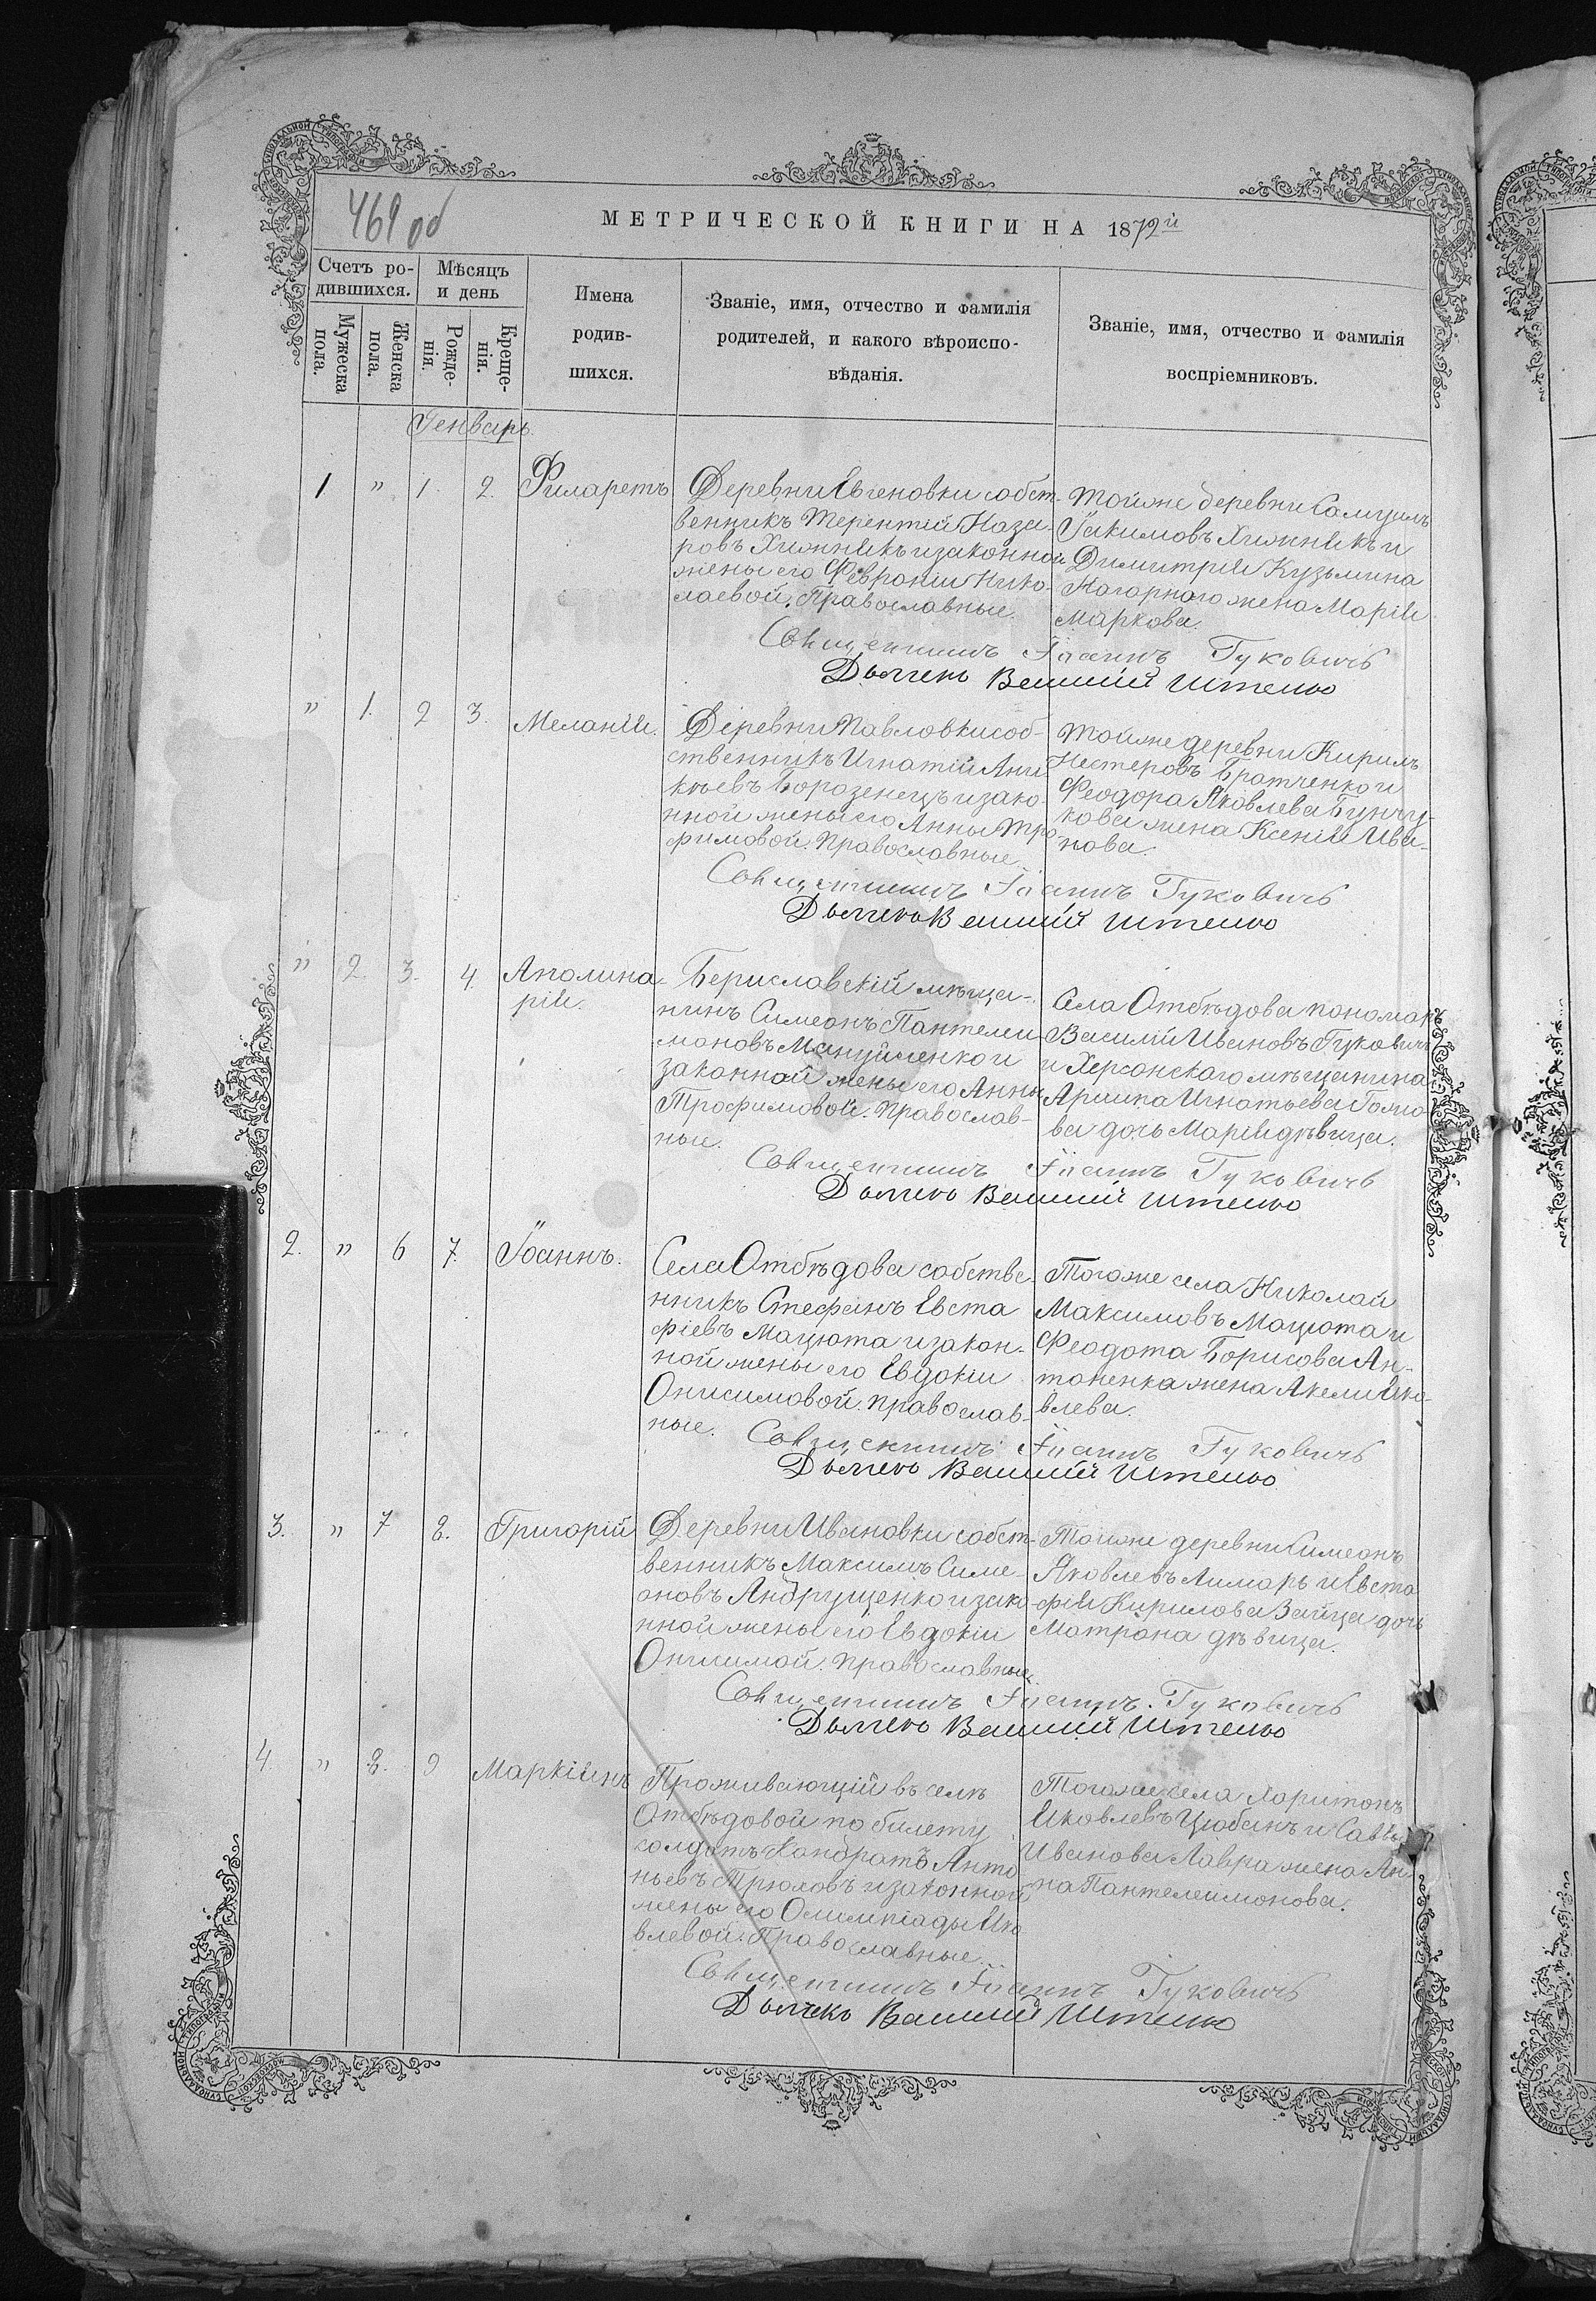 469 об
МЕТРИЧЕСКОЙ КНИГИ НА 1872й
Счетъ ро-
дившихся.
Мужеска
пола.
Женска
пола.
Мѣсяцъ
и день
Рожде-
нія.
Креще-
нія.
Имена
родив-
шихся.
Званіе, имя, отчество и фамилія
родителей, и какого вѣроиспо-
вѣданія.
Званіе, имя, отчество и фамилія
воспріемниковъ.
Генварь.
1 " 1. 2. Филаретъ
Деревни Евгеновки собст-
венникъ Терентій Наза-
ровъ Хижнякъ и законной
жены его Февроніи Нико-
лаевой. Православные.
Тойже деревни Самуилъ
Іакимовъ Хижнякъ и
Димитрія Кузьмина
Нагорнаго жена Марія
Маркова.
Священникъ Іоаннъ Гуковичъ
Дьячекъ Василій
" 1. 2 3. Меланія.
Деревни Павловки соб-
ственникъ Игнатій Ани-
кѣевъ Борозенецъ и зако-
нной жены его Анны Тро-
фимовой. Православные.
Тойже деревни Кирилъ
Нестеровъ Братченко и
Феодора Яковлева Бунчу-
кова жена Ксенія Ива-
нова.
Священникъ Іоаннъ Гуковичъ
Дьячекъ Василій
" 2. 3. 4. Аполина-
рія.
Бериславскій мѣща-
нинъ Симеонъ Пантелеи-
моновъ Мануйленко и
законной жены его Анны
Трофимовой. Православ-
ные.
Села Отбѣдова пономарь
Василій Ивановъ Гуковичъ
и Херсонскаго мѣщанина
Игнатьева
ва дочь Марія дѣвица.
Священникъ Іоаннъ Гуковичъ
Дьячекъ Василій
2. " 6 7. Іоаннъ.
Села Отбѣдова собстве-
нникъ Стефанъ Евста-
фіевъ Мацюта и закон-
ной жены его Евдокіи
Онисимовой. Православ-
ные.
Тогоже села Николай
Максимовъ Мацюта и
Феодота Борисова Ан-
тоненка жена Яко-
влева.
Священникъ Іоаннъ Гуковичъ
Дьячекъ Василій
3. " 7 8. Григорій
Деревни Ивановки собст-
венникъ Максимъ Симе-
оновъ Андрущенко и зако-
нной жены его Евдокіи
Православные.
Тойже деревни Симеонъ
Яковлевъ Лимарь и Евста-
фія Кирилова Зайца дочь
Матрона дѣвица.
Священникъ Іоаннъ Гуковичъ
Дьячекъ Василій
4. " 8. 9 Маркіянъ
Проживающій въ селѣ
Отбѣдовой по билету
солдатъ Кондратъ Анто-
ньевъ Трюховъ и законной
жены его Олимпіады Ия-
влевой. Православные.
Тогоже села Харитонъ
Яковлевъ Цюбанъ и Савы
Иванова Лавра жена Ан-
на Пантелеимонова.
Священникъ Іоаннъ Гуковичъ
Дьячекъ Василій